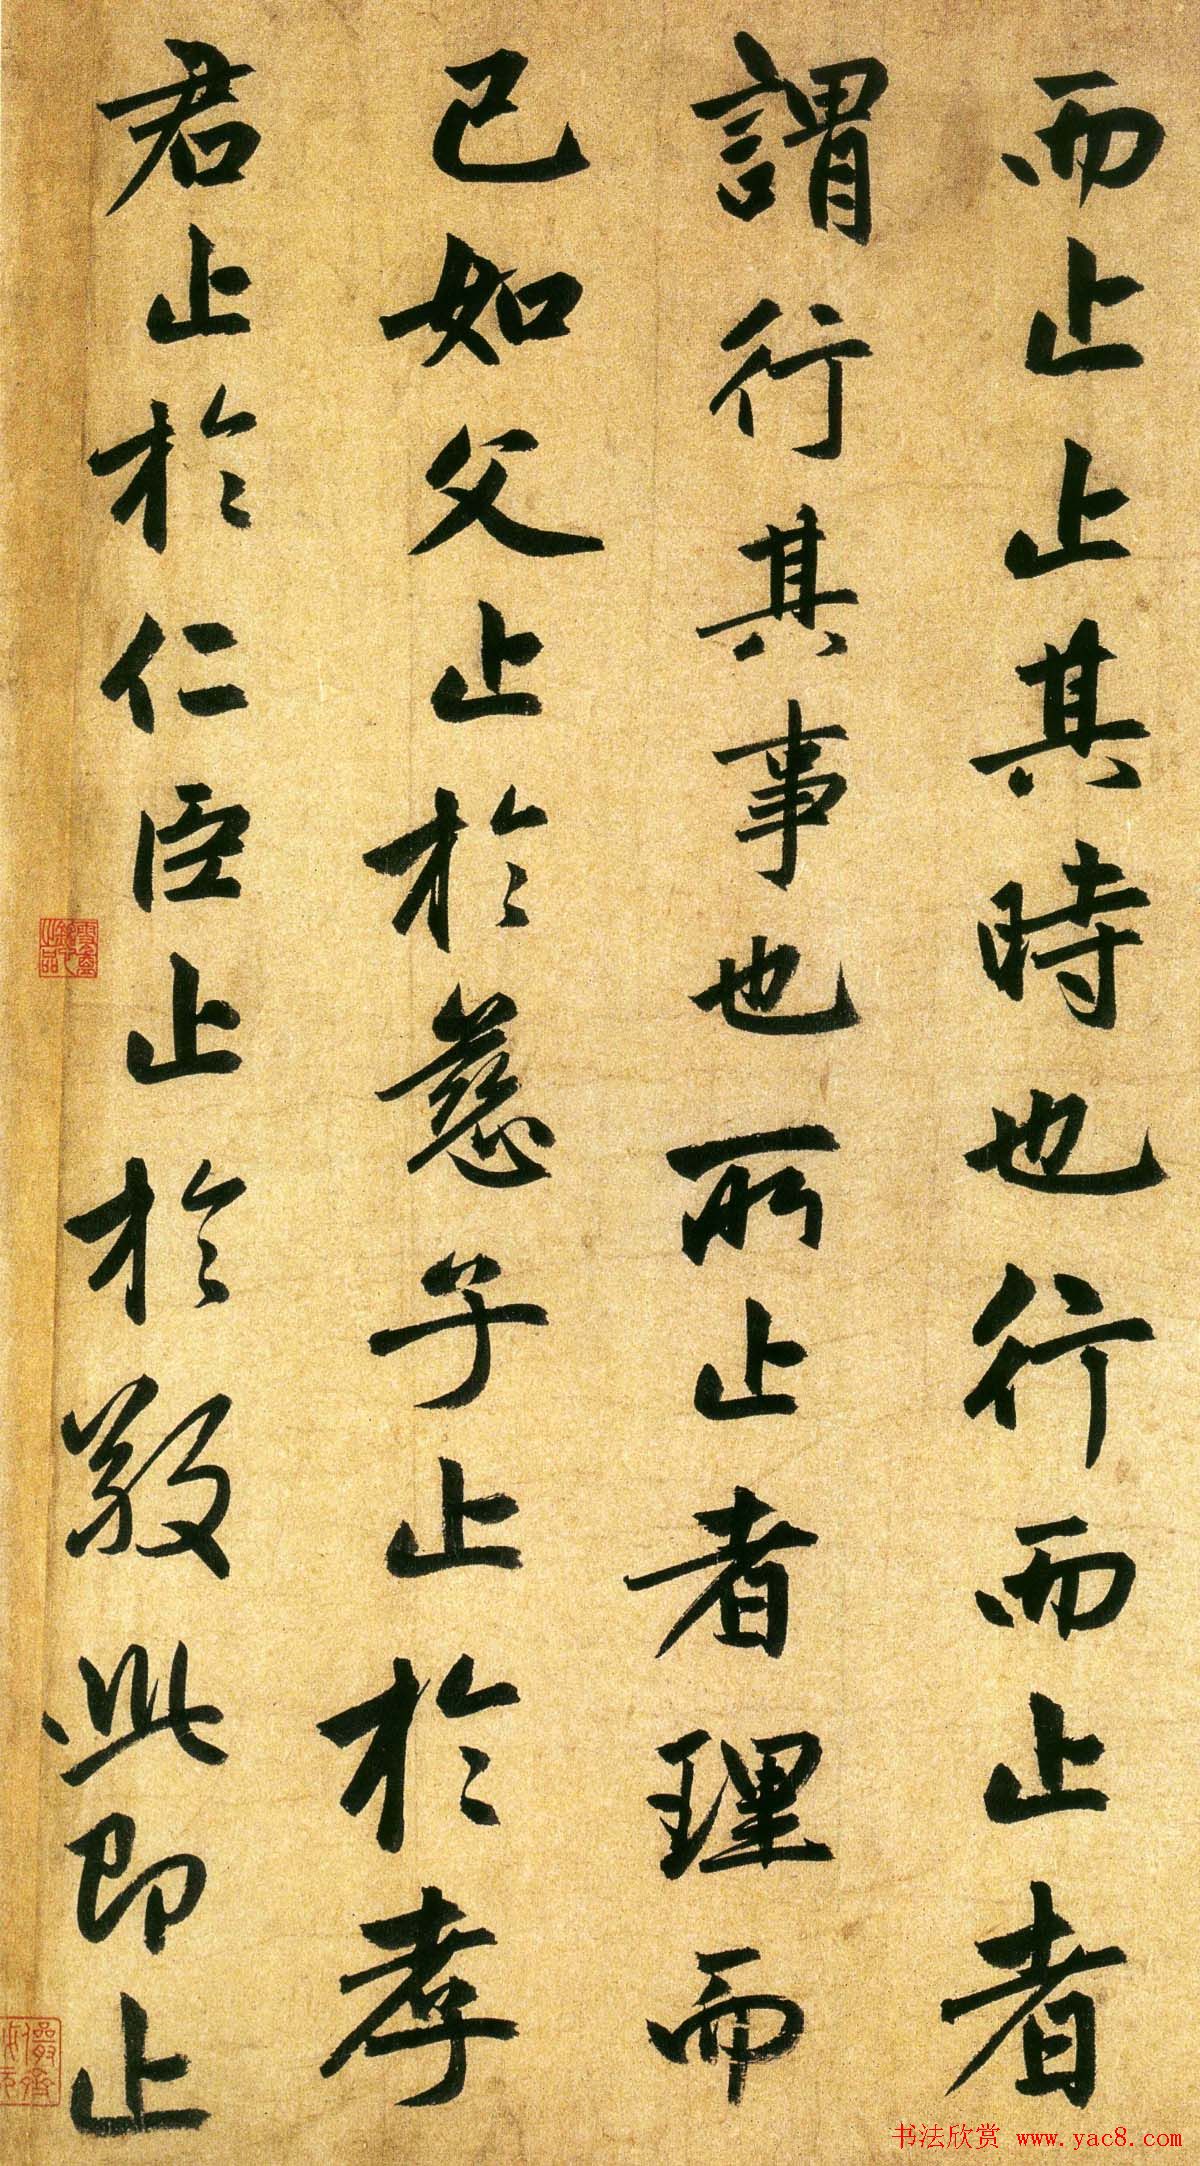 而止止其時也行而止者
謂行其事也所止者理而
已如父止於慈子止於孝
君止於仁臣止於敬此即止
书法欣赏 www.yac8.com